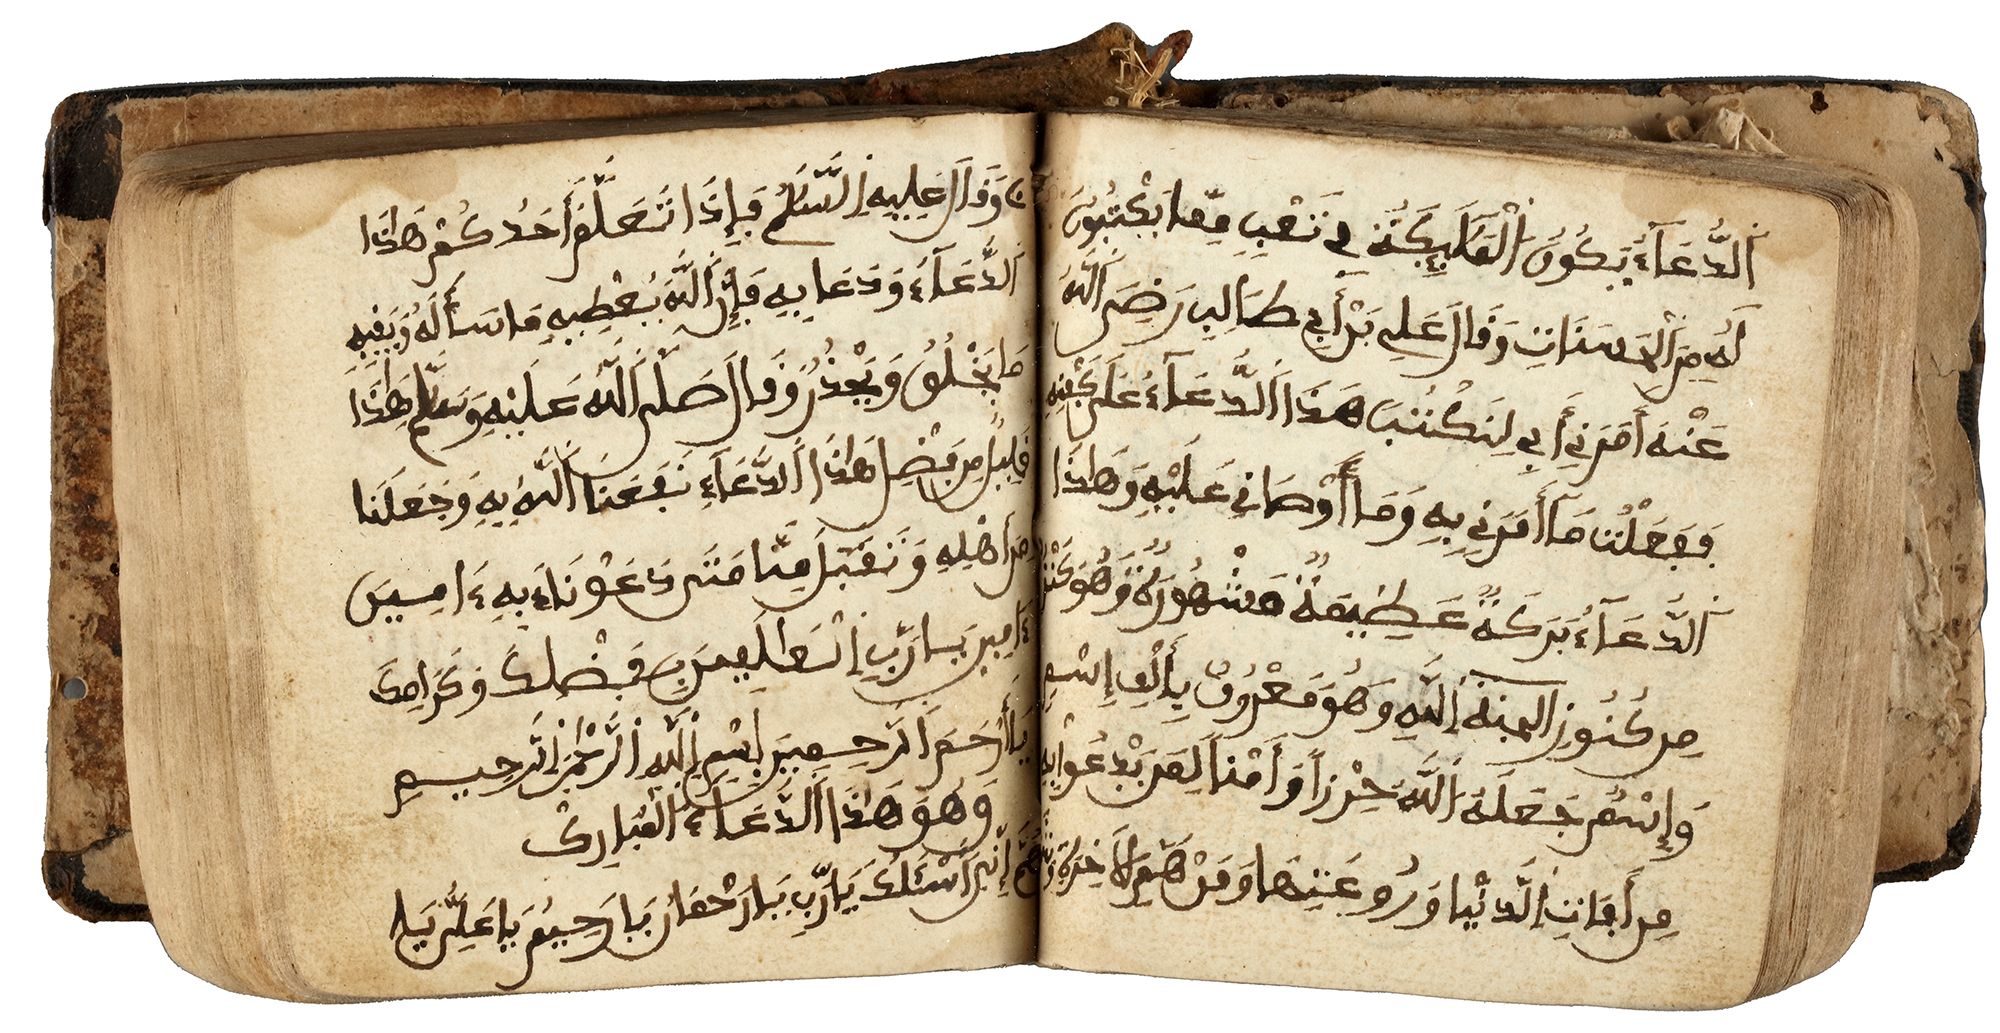 الدُّعَآءِ يَكُونُ الْمَلَٰٓئِكَةُ فِي تَعَبٍ مِمَّا يَكْتُبُونَ
لَهُ مِنَ الْحَسَنَاتِ وَقَالَ عَلِي بْنُ أَبِي طَالِبٍ رَضِيَ اللَّهُ
عَنْهُ أَمَرَنِي أَبِي لِنَكْتُبَ هَذَا الدُّعَآءَ عَلَى كَفَنِهِ
فَفَعَلْتُ مَا أَمَرَنِي بِهِ وَمَا أَوْصَانِي عَلَيْهِ وَهَٰذَا
الدُّعَآءُ بَرَكَةٌ عَظِيمَةٌ مَشْهُورَةٌ وَهُوَ كَنْزٌ
مِن كُنُوزِ الجنة اللَّهِ وَهُوَ مَعْرُوفٌ بِأَلْفِ إِسْمٍ
وَإِسْمٌ جَعَلَهُ اللَّهُ حِرْزاً وَأَمْناً لِمَنْ يَدْعُوا بِهِ
مِن أَفَاتِ الدُّنْيَا وَمِنْ هَمِّ الَاخِرَةِ
وَقَالَ عَلَيْهِ السَّلَٰمُ فَإِذَا تَعَلَّمَ أَحَدُكُمْ هَٰذَا
الدُّعَآءَ وَدَعَا بِهِ فَإِنَّ اللَّهَ يُعْطِيهِ مَا سَأَلَهُ وَيَقِيهِ
مَا يَخَافُ وَيَحْذَرُ وَقَالَ صَلَّى اللَّهُ عَلَيْهِ وَسَلَّمَ هَٰذَا
قَلِيلٌ مِن فَضْلِ هَٰذَا الدُّعَآءِ نَفَعَنَا اللَّهُ بِهِ وَجَعَلَنَا
مِنَ أَهْلِهِ وَتَقَبَّلَ مِنَّا مَتَى دَعَوْنَاهُ بِهِ ءَامِين
ءَامِين يَا رَبَّ الْعَالَمِينَ بِفَضْلِكَ وَكَرَامِكَ
يَا أَرْحَمَ الرَّحِمِينَ بِسْمِ اللَّهِ الرَّحْمَٰنِ الرَّحِيمِ
وَهُوَ هَٰذَا الدُّعَآءُ الْمُبَارِكْ
اللَّهُمَّ إِنِّي أَسْئَلُكَ يَا رَبِّ يَا رَحْمَانُ يَا رَحِيمُ يَا عَلِيُّ